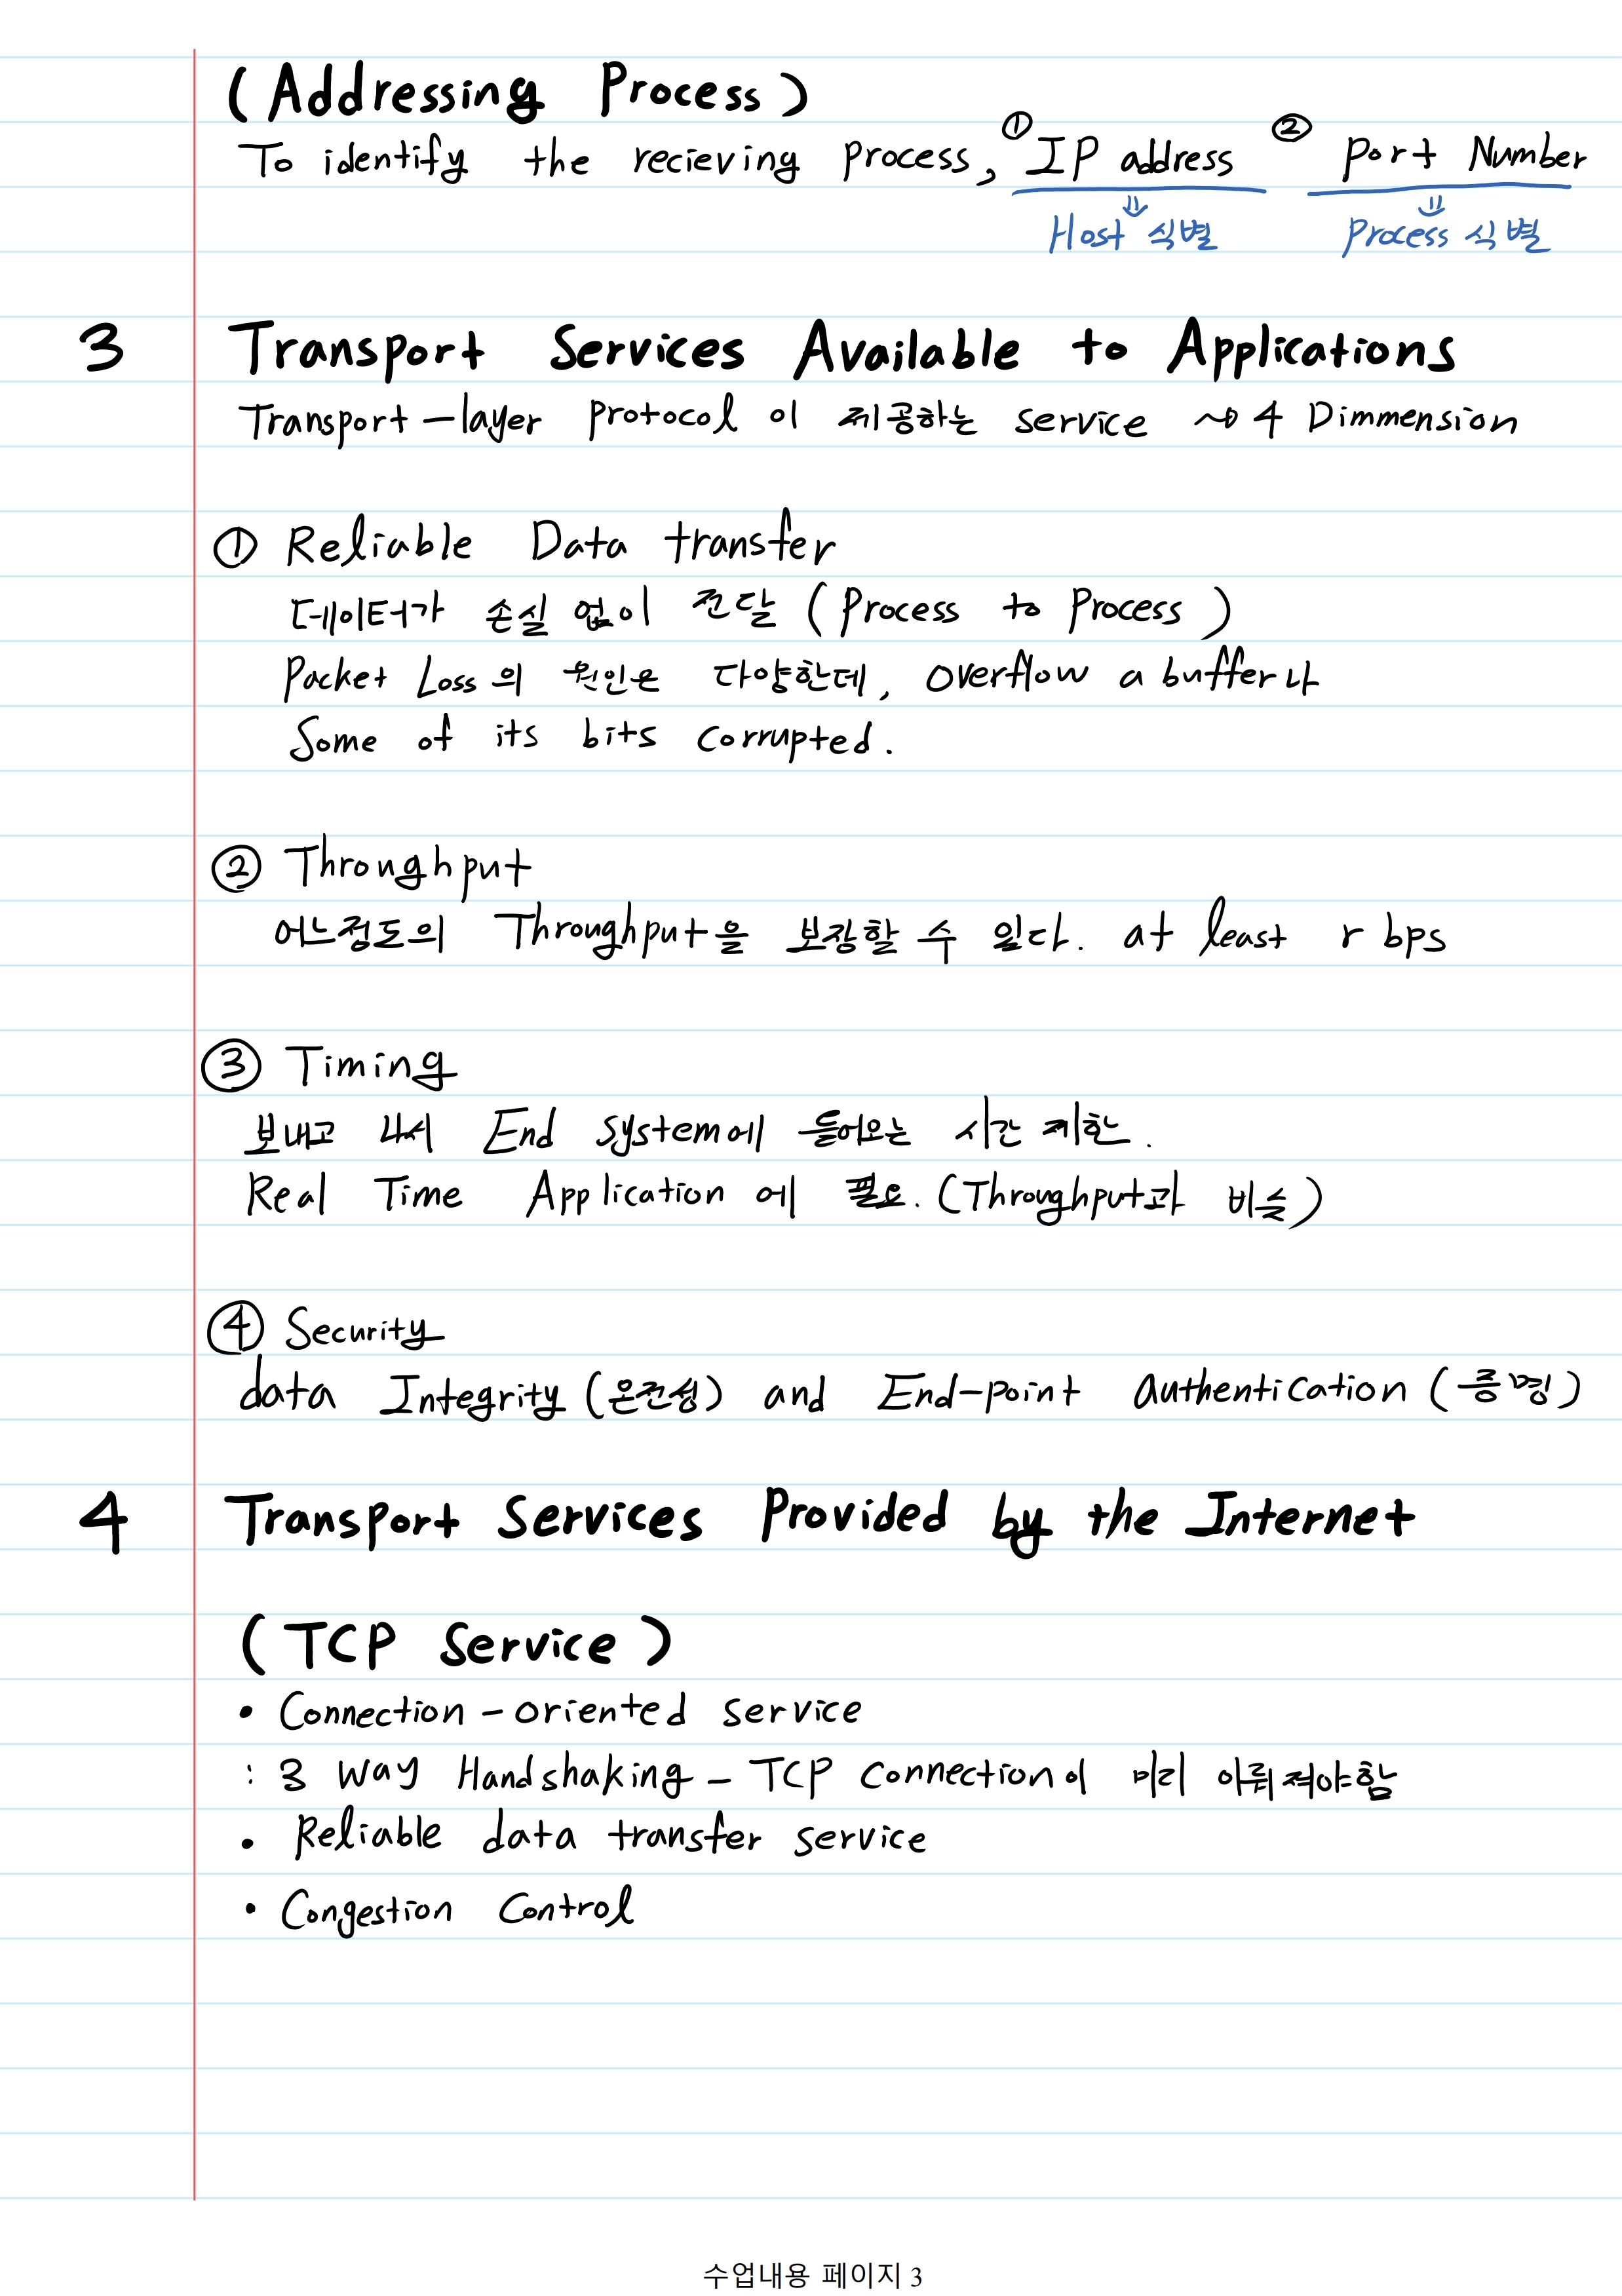 (Addressing Process)
To identify the recieving process, ① IP address ② port Number
⇓ ⇓
Host 식별 Process 식별
3 Transport Services Available to Applications
Transport-layer protocol 이 제공하는 service ~> 4 Dimmension
① Reliable Data transfer
데이터가 손실 없이 전달 (Process to Process)
Packet Loss의 원인은 다양한데, overflow a buffer나
Some of its bits corrupted.
② Throughput
어느정도의 Throughput을 보장할 수 있다. at least r bps
③ Timing
보내고 나서 End system에 들어오는 시간 제한.
Real Time Application에 필요. (Throughput과 비슷)
④ Security
data Integrity (온전성) and End-point authentication (증명)
4 Transport Services Provided by the Internet
(TCP Service)
• Connection-oriented service
: 3 way Handshaking - TCP connection이 미리 이뤄져야함
• Reliable data transfer service
• Congestion Control
수업내용 페이지 3